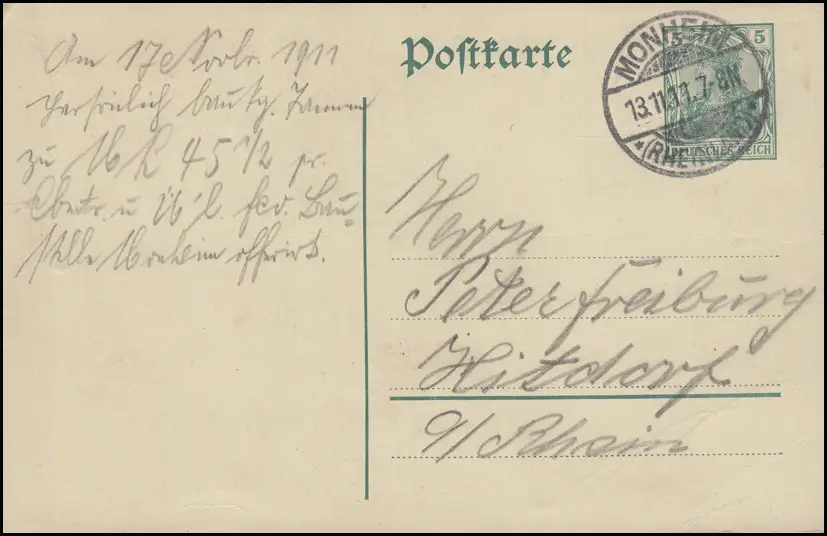 Am 17 Novbr. 1911
Persönlich
zu Mk 45 1/2 pr.
u fco. Bau-
stelle Monheim offerirt.
Postkarte
5 5
DEUTSCHES REICH
MONHEIM
13.11.11.7-8N.
*(RHEINLAND)*
Herrn
Peter Freiburg
Hitdorf
a/Rhein